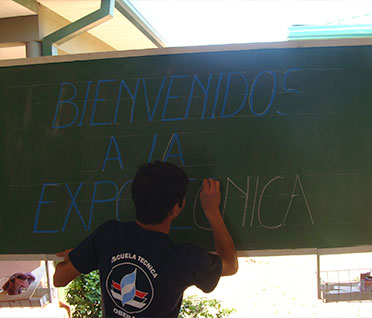 BIENVENIDOS
A LA
EXPO
NICA
ESCUELA TECNICA